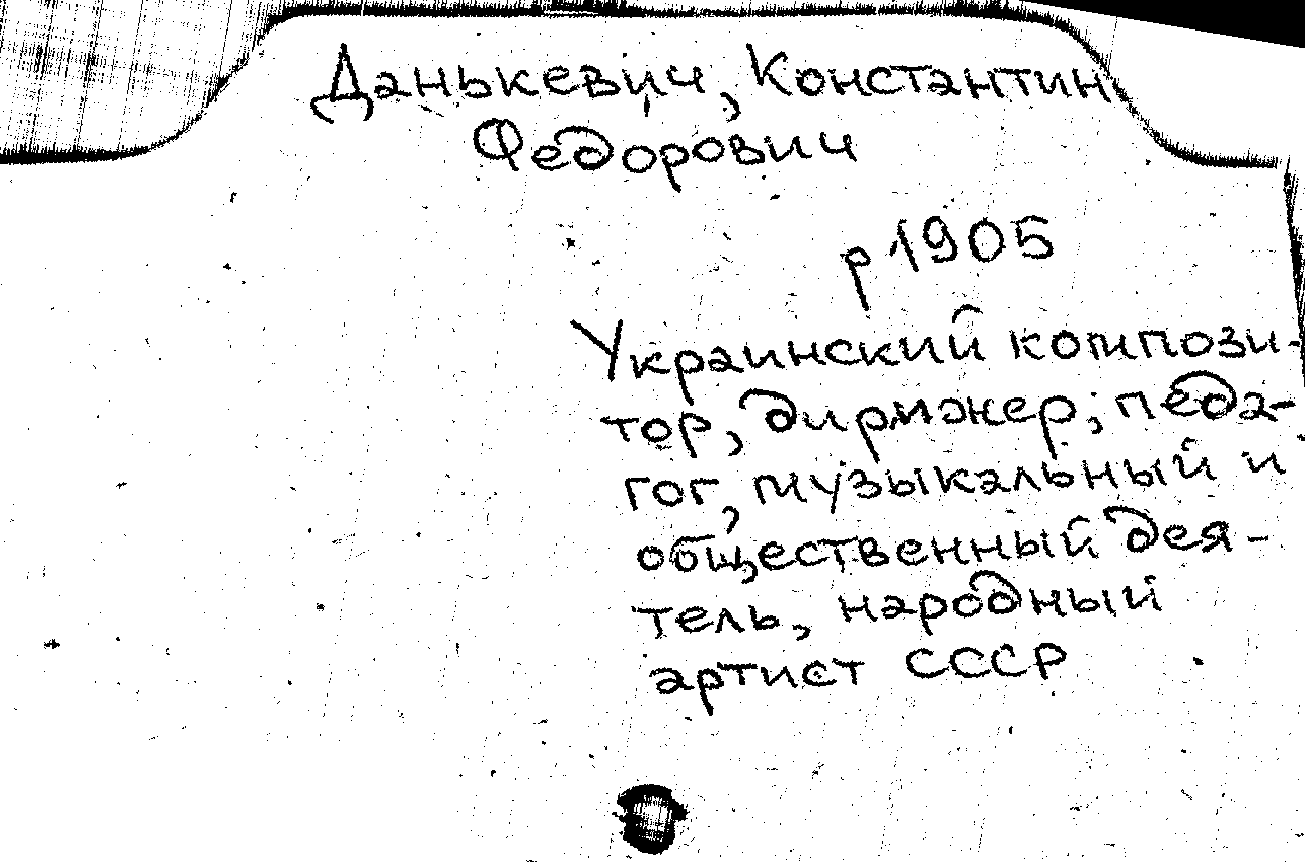 Данькевич, Константин
Федорович
р 1905
Украинский компози-
тор, дирижер, педа-
гог, музыкальный и
общественный дея-
тель, народный
артист СССР